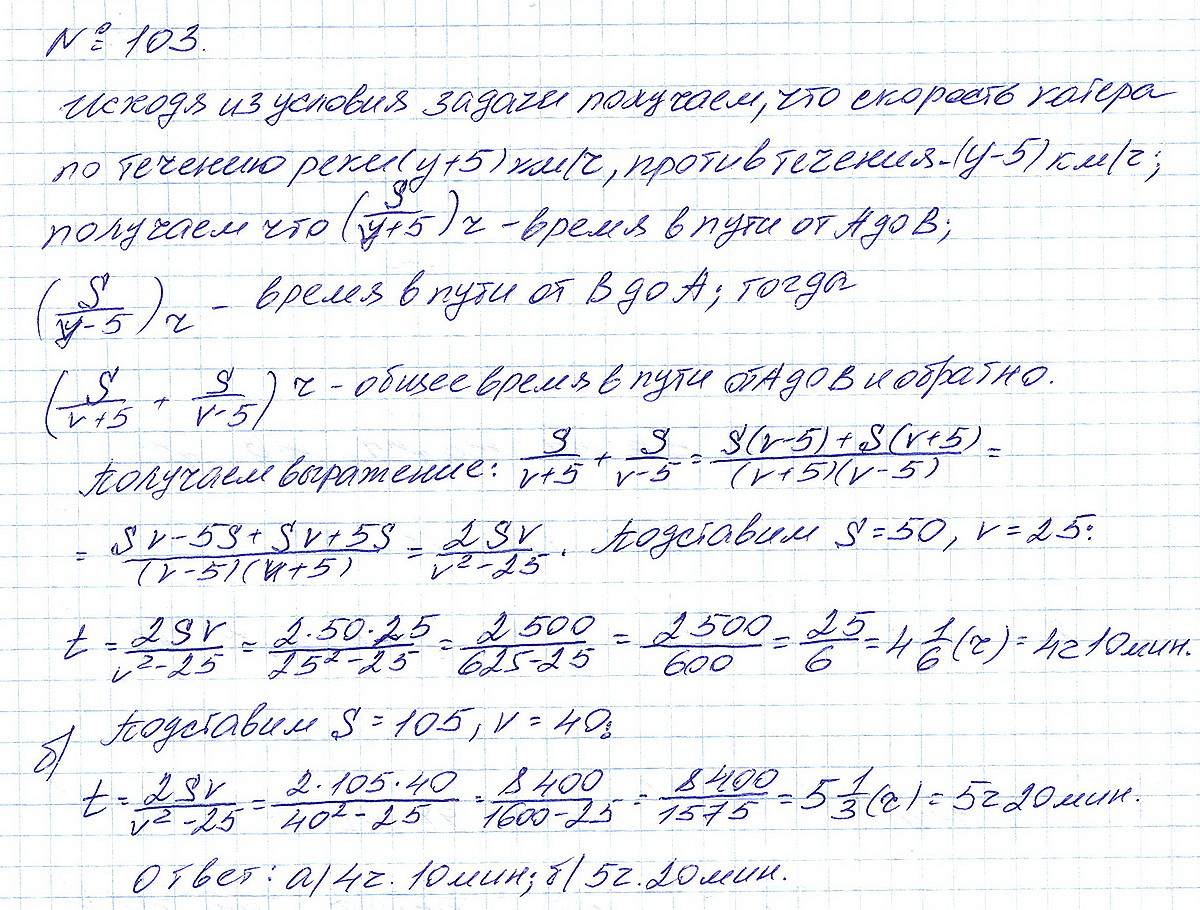 № 103.
Исходя из условия задачи получаем, что скорость катера
по течению реки (y+5) км/ч, против течения - (y-5) км/ч;
получаем что (S/(y+5)) ч - время в пути от А до В;
(S/(y-5)) ч - время в пути от В до А; тогда
(S/(v+5) + S/(v-5)) ч - общее время в пути от А до В и обратно.
Получаем выражение: S/(v+5) + S/(v-5) = (S(v-5)+S(v+5))/((v+5)(v-5)) =
= (Sv-5S+Sv+5S)/((v-5)(v+5)) = 2Sv/(v²-25). Подставим S=50, v=25:
t = 2Sv/(v²-25) = (2·50·25)/(25²-25) = 2500/(625-25) = 2500/600 = 25/6 = 4 1/6 (ч) = 4ч 10мин.
б) Подставим S=105, v=40:
t = 2Sv/(v²-25) = (2·105·40)/(40²-25) = 8400/(1600-25) = 8400/1575 = 5 1/3 (ч) = 5ч 20мин.
Ответ: а) 4ч. 10мин; б) 5ч. 20мин.